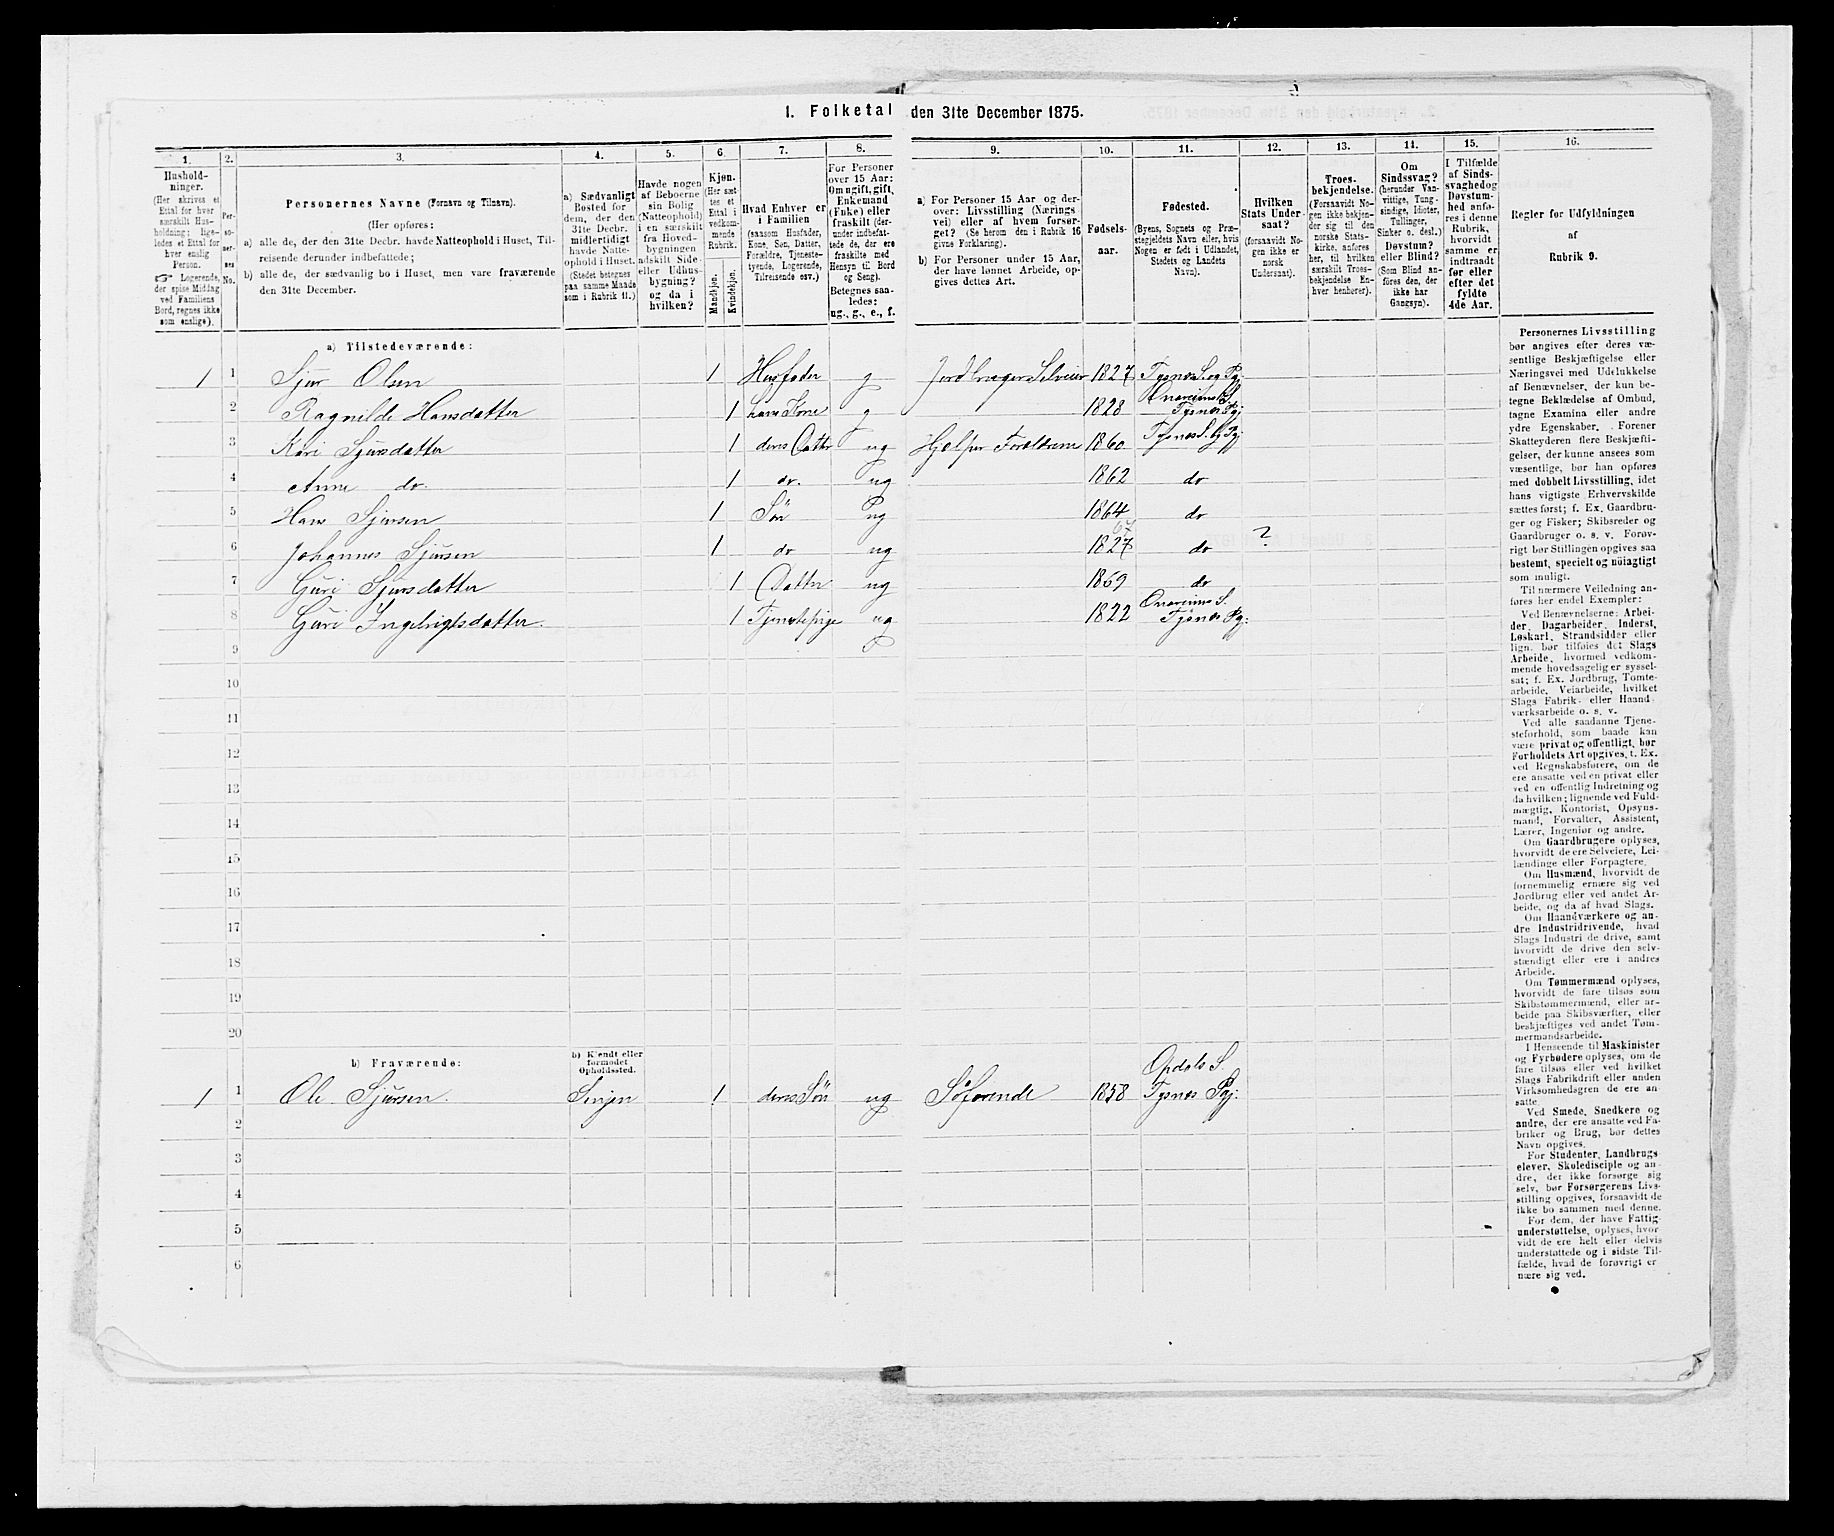 1. Folketal den 31te December 1875.
1. 2. 3. 4. 5. 6. 7. 8. 9. 10. 11. 12. 13. 14. 15. 16.
Hushold-
ninger.
(Her skrives et
Ettal for hver
særskilt Hus-
holdning; lige-
ledes et Ettal for
hver enslig
Person.
☞ Logerende,
der spise Middag
ved Familiens
Bord, regnes ikke
som enslige).
Per-
so-
ner-
nes
No.
Personernes Navne (Fornavn og Tilnavn).
(Her opføres:
a) alle de, der den 31te Decbr. havde Natteophold i Huset, Til-
reisende derunder indbefattede;
b) alle de, der sædvanlig bo i Huset, men vare fraværende
den 31te December.
a) Sædvanligt
Bosted for
dem, der den
31te Decbr.
midlertidigt
havde Natte-
ophold i Huset.
(Stedet betegnes
paa samme Maade
som i Rubrik 11.)
Havde nogen
af Beboerne
sin Bolig
(Natteophold)
i en særskilt
fra Hoved-
bygningen
adskilt Side-
eller Udhus-
bygning?
og da i
hvilken?
Kjøn.
(Her sæt-
tes et
Ettal i
vedkom-
mende
Rubrik.
Mandkjøn.
Kvindekjøn.
Hvad Enhver er
i Familien
(saasom Husfader,
Kone, Søn, Datter,
Forældre, Tjeneste-
tyende, Logerende,
Tilreisende osv.)
For Personer
over 15 Aar:
Om ugift, gift,
Enkemand
(Enke) eller
fraskilt (der-
under indbefat-
tede de, der ere
fraskilte med
Hensyn til Bord
og Seng).
Betegnes saa-
ledes:
ug., g., e., f.
a) For Personer 15 Aar og der-
over: Livsstilling (Nærings
vei) eller af hvem forsør-
get? (Se herom den i Rubrik 16
givne Forklaring).
b) For Personer under 15 Aar,
der have lønnet Arbeide, op-
gives dettes Art.
Fødsels-
aar.
Fødested.
(Byens, Sognets og Præ-
stegjeldets Navn eller, hvis
Nogen er født i Udlandet,
Stedets og Landets
Navn).
Hvilken
Stats Under-
saat?
(forsaavidt No-
gen ikke er
norsk
Undersaat).
Troes-
bekjendelse.
(Forsaavidt No-
gen ikke bekjen-
der sig til den
norske Stats-
kirke, anføres
her, til hvilken
særskilt Troes-
bekjendelse En-
hver henhører).
Om
Sindssvag?
(herunder Van-
vittige, Tung-
sindige, Idioter,
Tullinger,
Sinker o. desl.)
Døvstum?
eller Blind?
(Som Blind an-
føres den, der
ikke har
Gangsyn).
I Tilfælde
af Sinds-
svaghed og
Døvstum-
hed anfø-
res i denne
Rubrik,
hvorvidt
samme er
indtraadt
før eller
efter det
fyldte
4de Aar.
Regler for Udfyldningen
af
Rubrik 9.
a) Tilstedeværende:
1 1 Sjur Olsen 1 Husfader g Jordbruger Selveier 1827 Tysnes S. og Pgj.
2 Ragnilde Hansdatter 1 hans Kone g 1828 Onareims S. Tysnes Pgj
3 Kari Sjursdatter 1 deres Datter ug Hjelper Forældrene 1860 Tysnes S. og Pgj
4 Anne do. 1 do. ug 1862 do
5 Hans Sjursen 1 Søn ug 1864 do
67
6 Johannes Sjursen 1 do ug 1827 do ?
7 Guri Sjursdatter 1 Datter ug 1869 do
8 Guri Ingebrigtsdatter. 1 Tjenestepige ug 1822 Onareims S. Tysnes Pgj:
9
10
11
12
13
14
15
16
17
18
19
20
b) Fraværende:
b) Kjendt eller
formodet
Opholdssted.
1 1 Ole Sjursen. Sinjen 1 deres Søn ug Søfarende 1858 Opdals S. Tysnes Pgj.
2
3
4
5
6
Personernes Livsstilling
bør angives efter deres væ-
sentlige Beskjæftigelse eller
Næringsvei med Udelukkelse
af Benævnelser, der kun be-
tegne Beklædelse af Ombud,
tagne Examina eller andre
ydre Egenskaber. Forener
Skatteyderen flere Beskjæfti-
gelser, der kunne ansees som
væsentlige, bør han opføres
med dobbelt Livsstilling, idet
hans vigtigste Erhvervskilde
sættes først; f. Ex. Gaardbru-
ger og Fisker; Skibsreder og
Gaardbruger o. s. v. Forøv-
rigt bør Stillingen opgives saa
bestemt, specielt og nøiagtigt
som muligt.
Til nærmere Veiledning an-
føres her endel Exempler:
Ved Benævnelserne: Arbei-
der, Dagarbeider, Inderst,
Løskarl, Strandsidder eller
lign. bør tilføies det Slags
Arbeide, hvormed vedkom-
mende hovedsagelig er syssel-
sat; f. Ex. Jordbrug, Tomte-
arbeide, Veiarbeide, hvilket
Slags Fabrik- eller Haand
værksarbeide o. s. v.
Ved alle saadanne Tjene-
steforhold, som baade kan
være privat og offentligt, bør
Forholdets Art opgives, t. Ex.
ved Regnskabsførere, om de
ere ansatte ved en privat eller
ved en offentlig Indretning og
da hvilken; lignende ved Fuld-
mægtig, Kontorist, Opsyns-
mand, Forvalter, Assistent,
Lærer, Ingeniør og andre.
Om Gaardbrugere oplyses,
hvorvidt de ere Selveiere, Lei-
lændinge eller Forpagtere.
Om Husmænd, hvorvidt de
fornemmelig ernære sig ved
Jordbrug eller ved andet Ar-
beide, og da af hvad Slags.
Om Haandværkere og an-
dre Industridrivende, hvad
Slags Industri de drive, samt
hvorvidt de drive den selv-
stændigt eller ere i andres
Arbeide.
Om Tømmermænd oplyses,
hvorvidt de fare tilsøs som
Skibstømmermænd, eller ar-
beide paa Skibsværfter, eller
beskjæftiges ved andet Tøm-
mermandsarbeide.
I Henseende til Maskinister
og Fyrbødere oplyses, om de
fare tilsøs eller ved hvilket
Slags Fabrikdrift eller anden
Virksomhedsgren de ere an-
satte.
Ved Smede, Snedkere og
andre, der ere ansatte ved Fa-
briker og Brug, bør dettes
Navn opgives.
For Studenter, Landbrugs
elever, Skoledisciple og an-
dre, der ikke forsørge sig
selv, bør Forsørgerens Livs-
stilling opgives, forsaavidt de
ikke bo sammen med denne.
For dem, der have Fattig-
understøttelse, oplyses, hvor-
vidt de ere helt eller delvis
understøttede og i sidste Til-
fælde, hvad de forøvrigt er
nære sig ved.